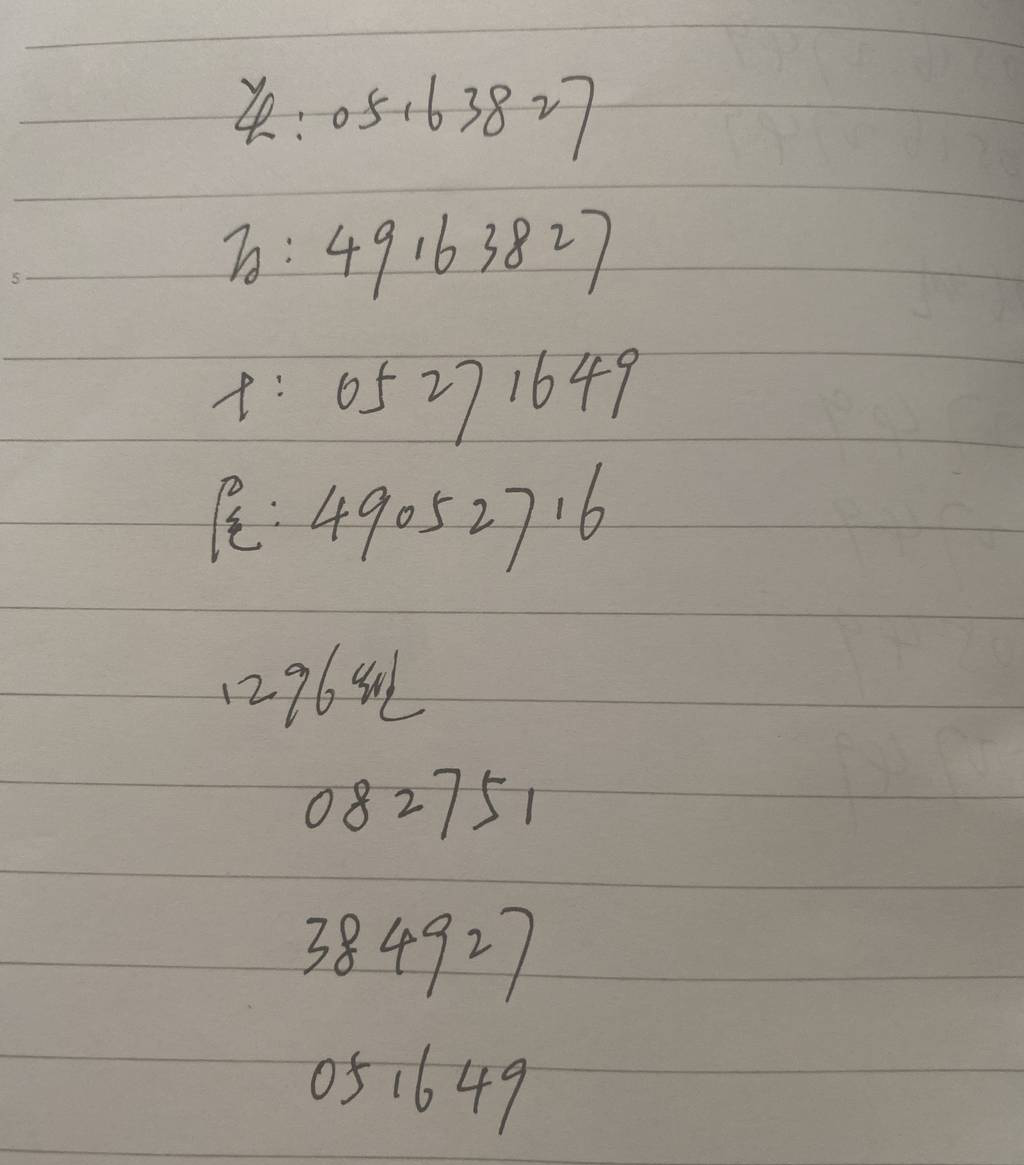 : 05163827
百: 49163827
5
十: 05271649
尾: 49052716
1296
082751
384927
051649